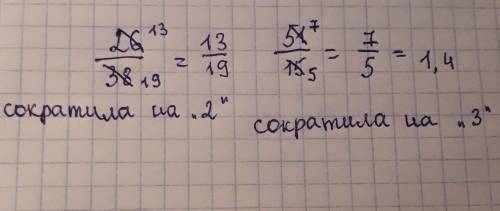 26/38 13/19 = 13/19
51/15 7/5 = 7/5 = 1,4
сократила на „2"
сократила на „3"